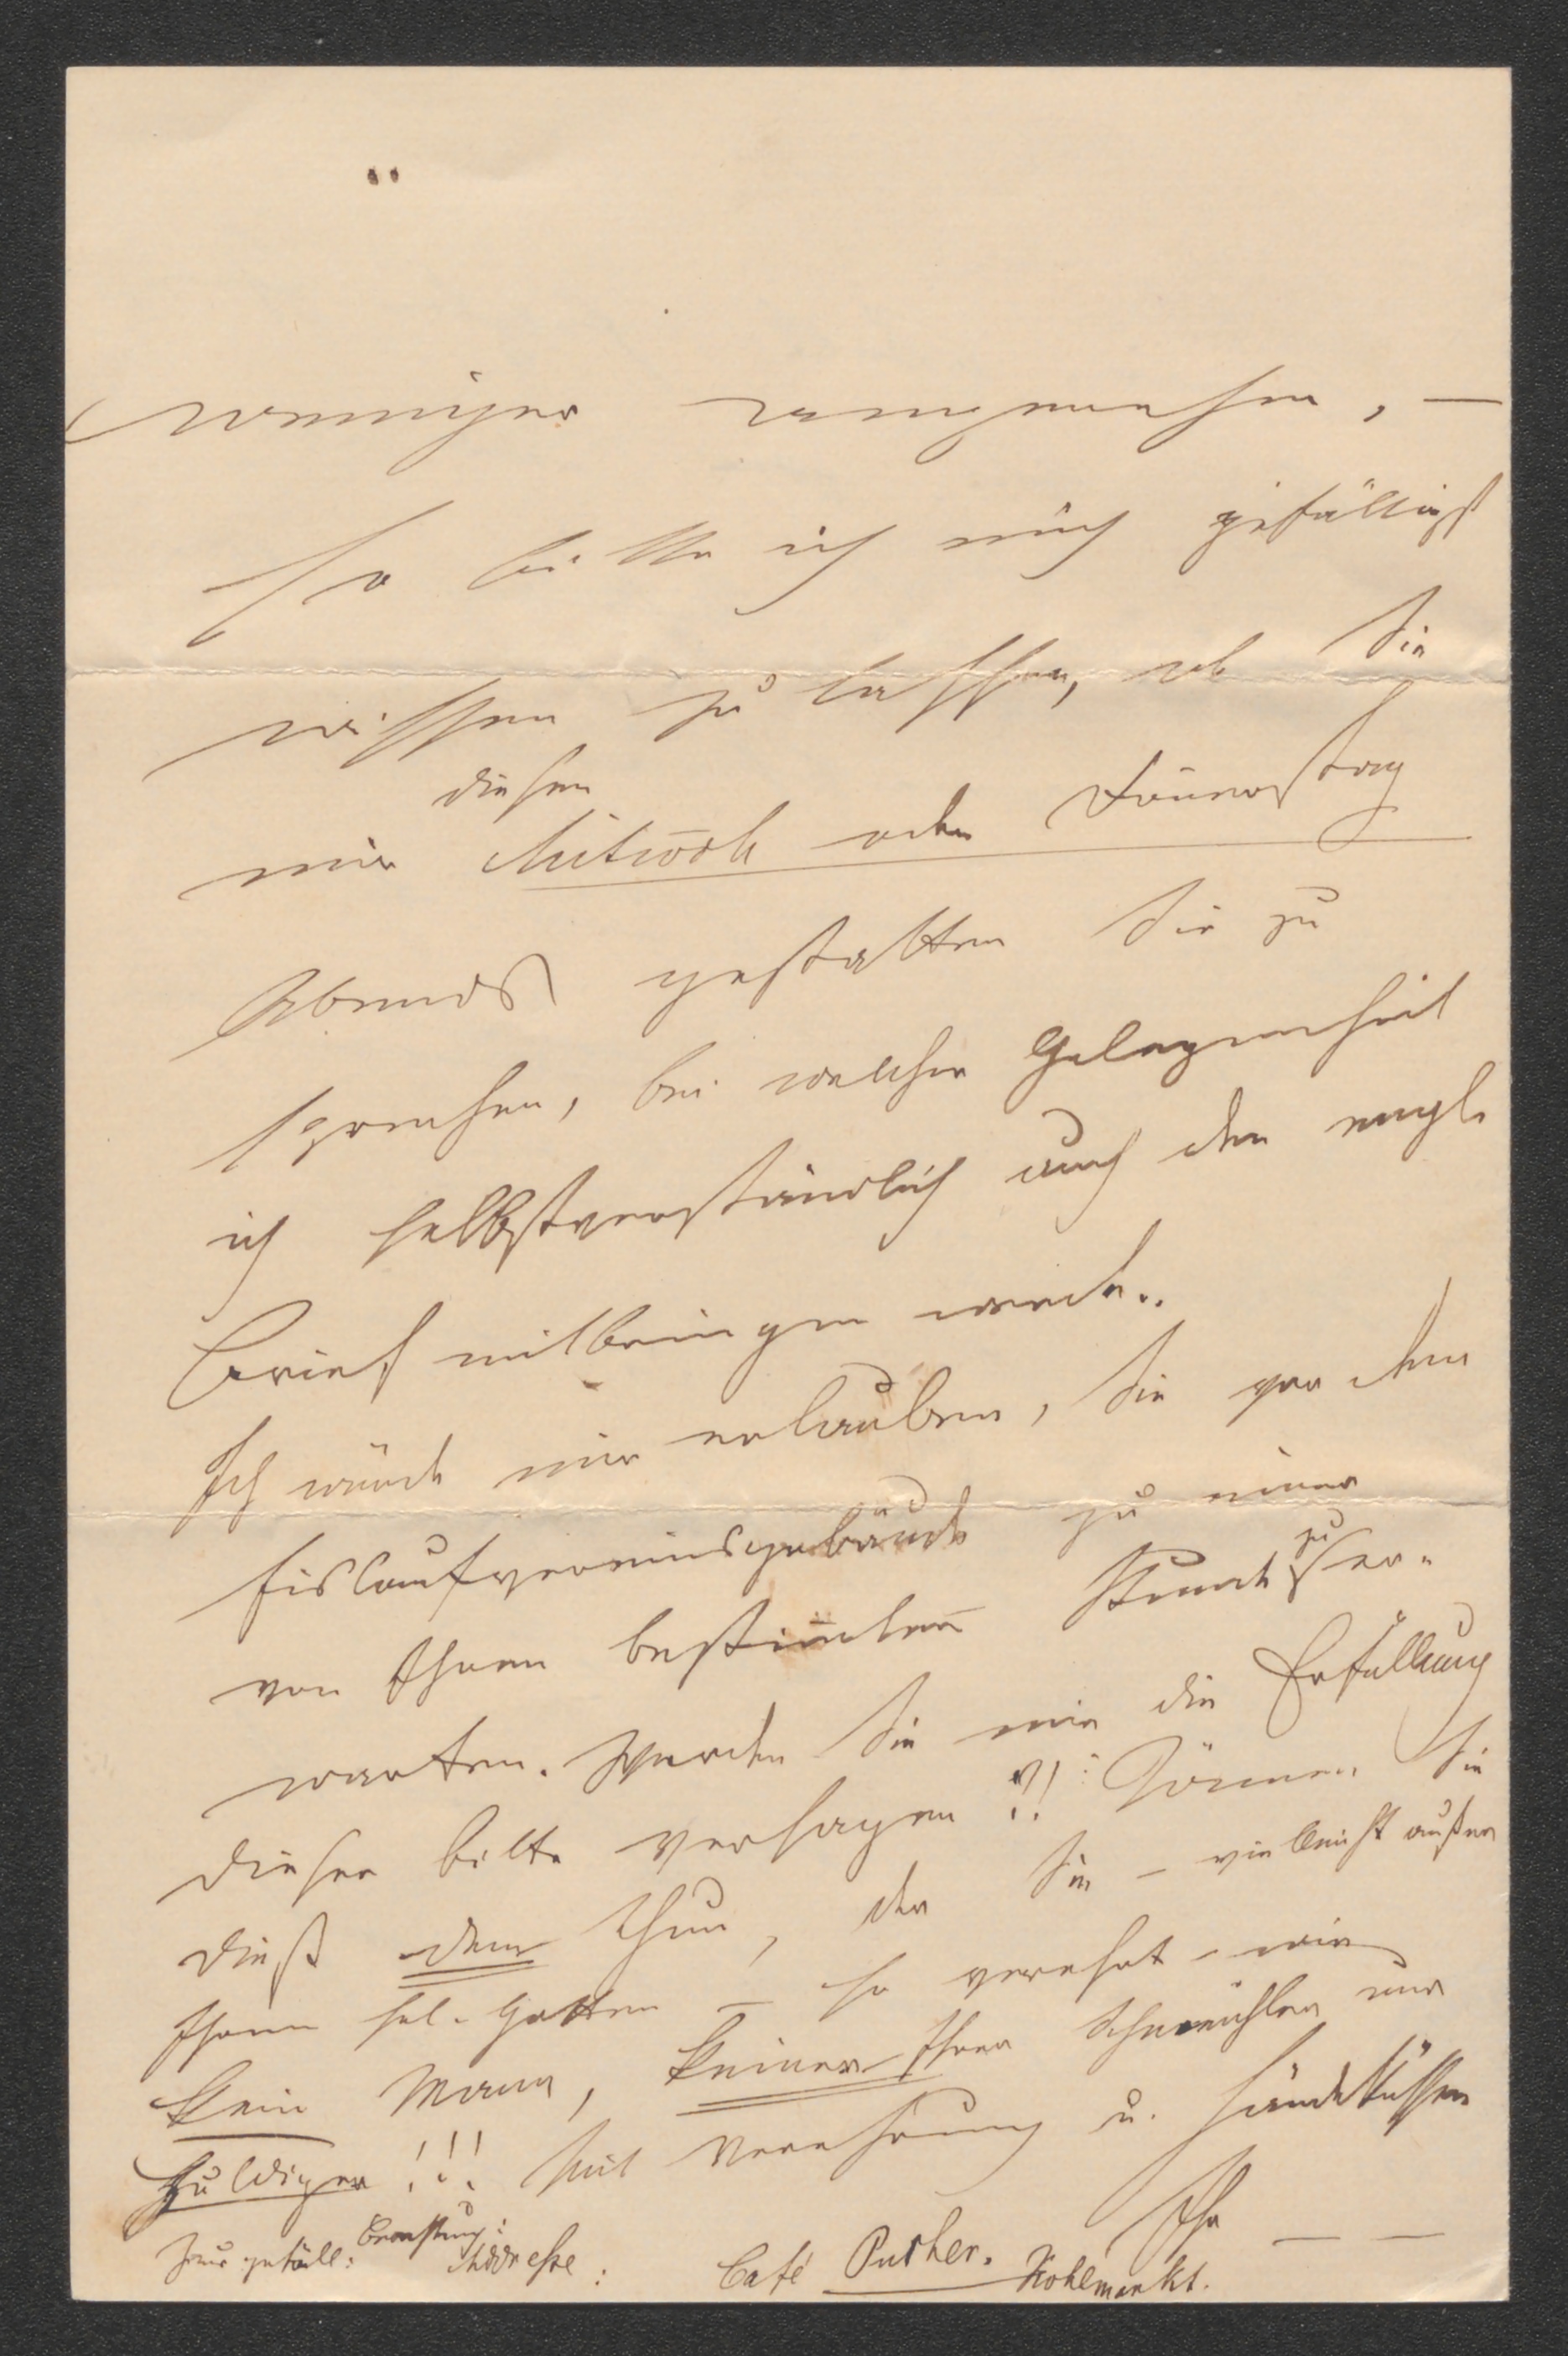 weniger angenehm, —
so bitte ich mich gefälligst
wissen zu lassen, ob Sie
diesen
mir Mitwoch oder Donnerstag
Abends gestatten Sie zu
sprechen, bei welcher Gelegenheit
ich selbstverständlich auch den engl.
Brief mitbringen werde..
Ich würde mir erlauben, Sie vor dem
Eislaufvereinsgebäude zu einer
von Ihnen bestim̄ten Stunde zu er-
warten. Werden Sie mir die Erfüllung
dieser Bitte versagen?! Können Sie
dieß dem thun, der Sie – vielleicht außer
Ihrem sel. Gatten – so verehrt wie
kein Mann, keiner Ihrer Schmeichler und
Huldiger!!! Mit Verehrung u. Handküssen
Ihr — —
Zur gefäll: Beachtung:
Addresse: Café Pucher. Kohlmarkt.